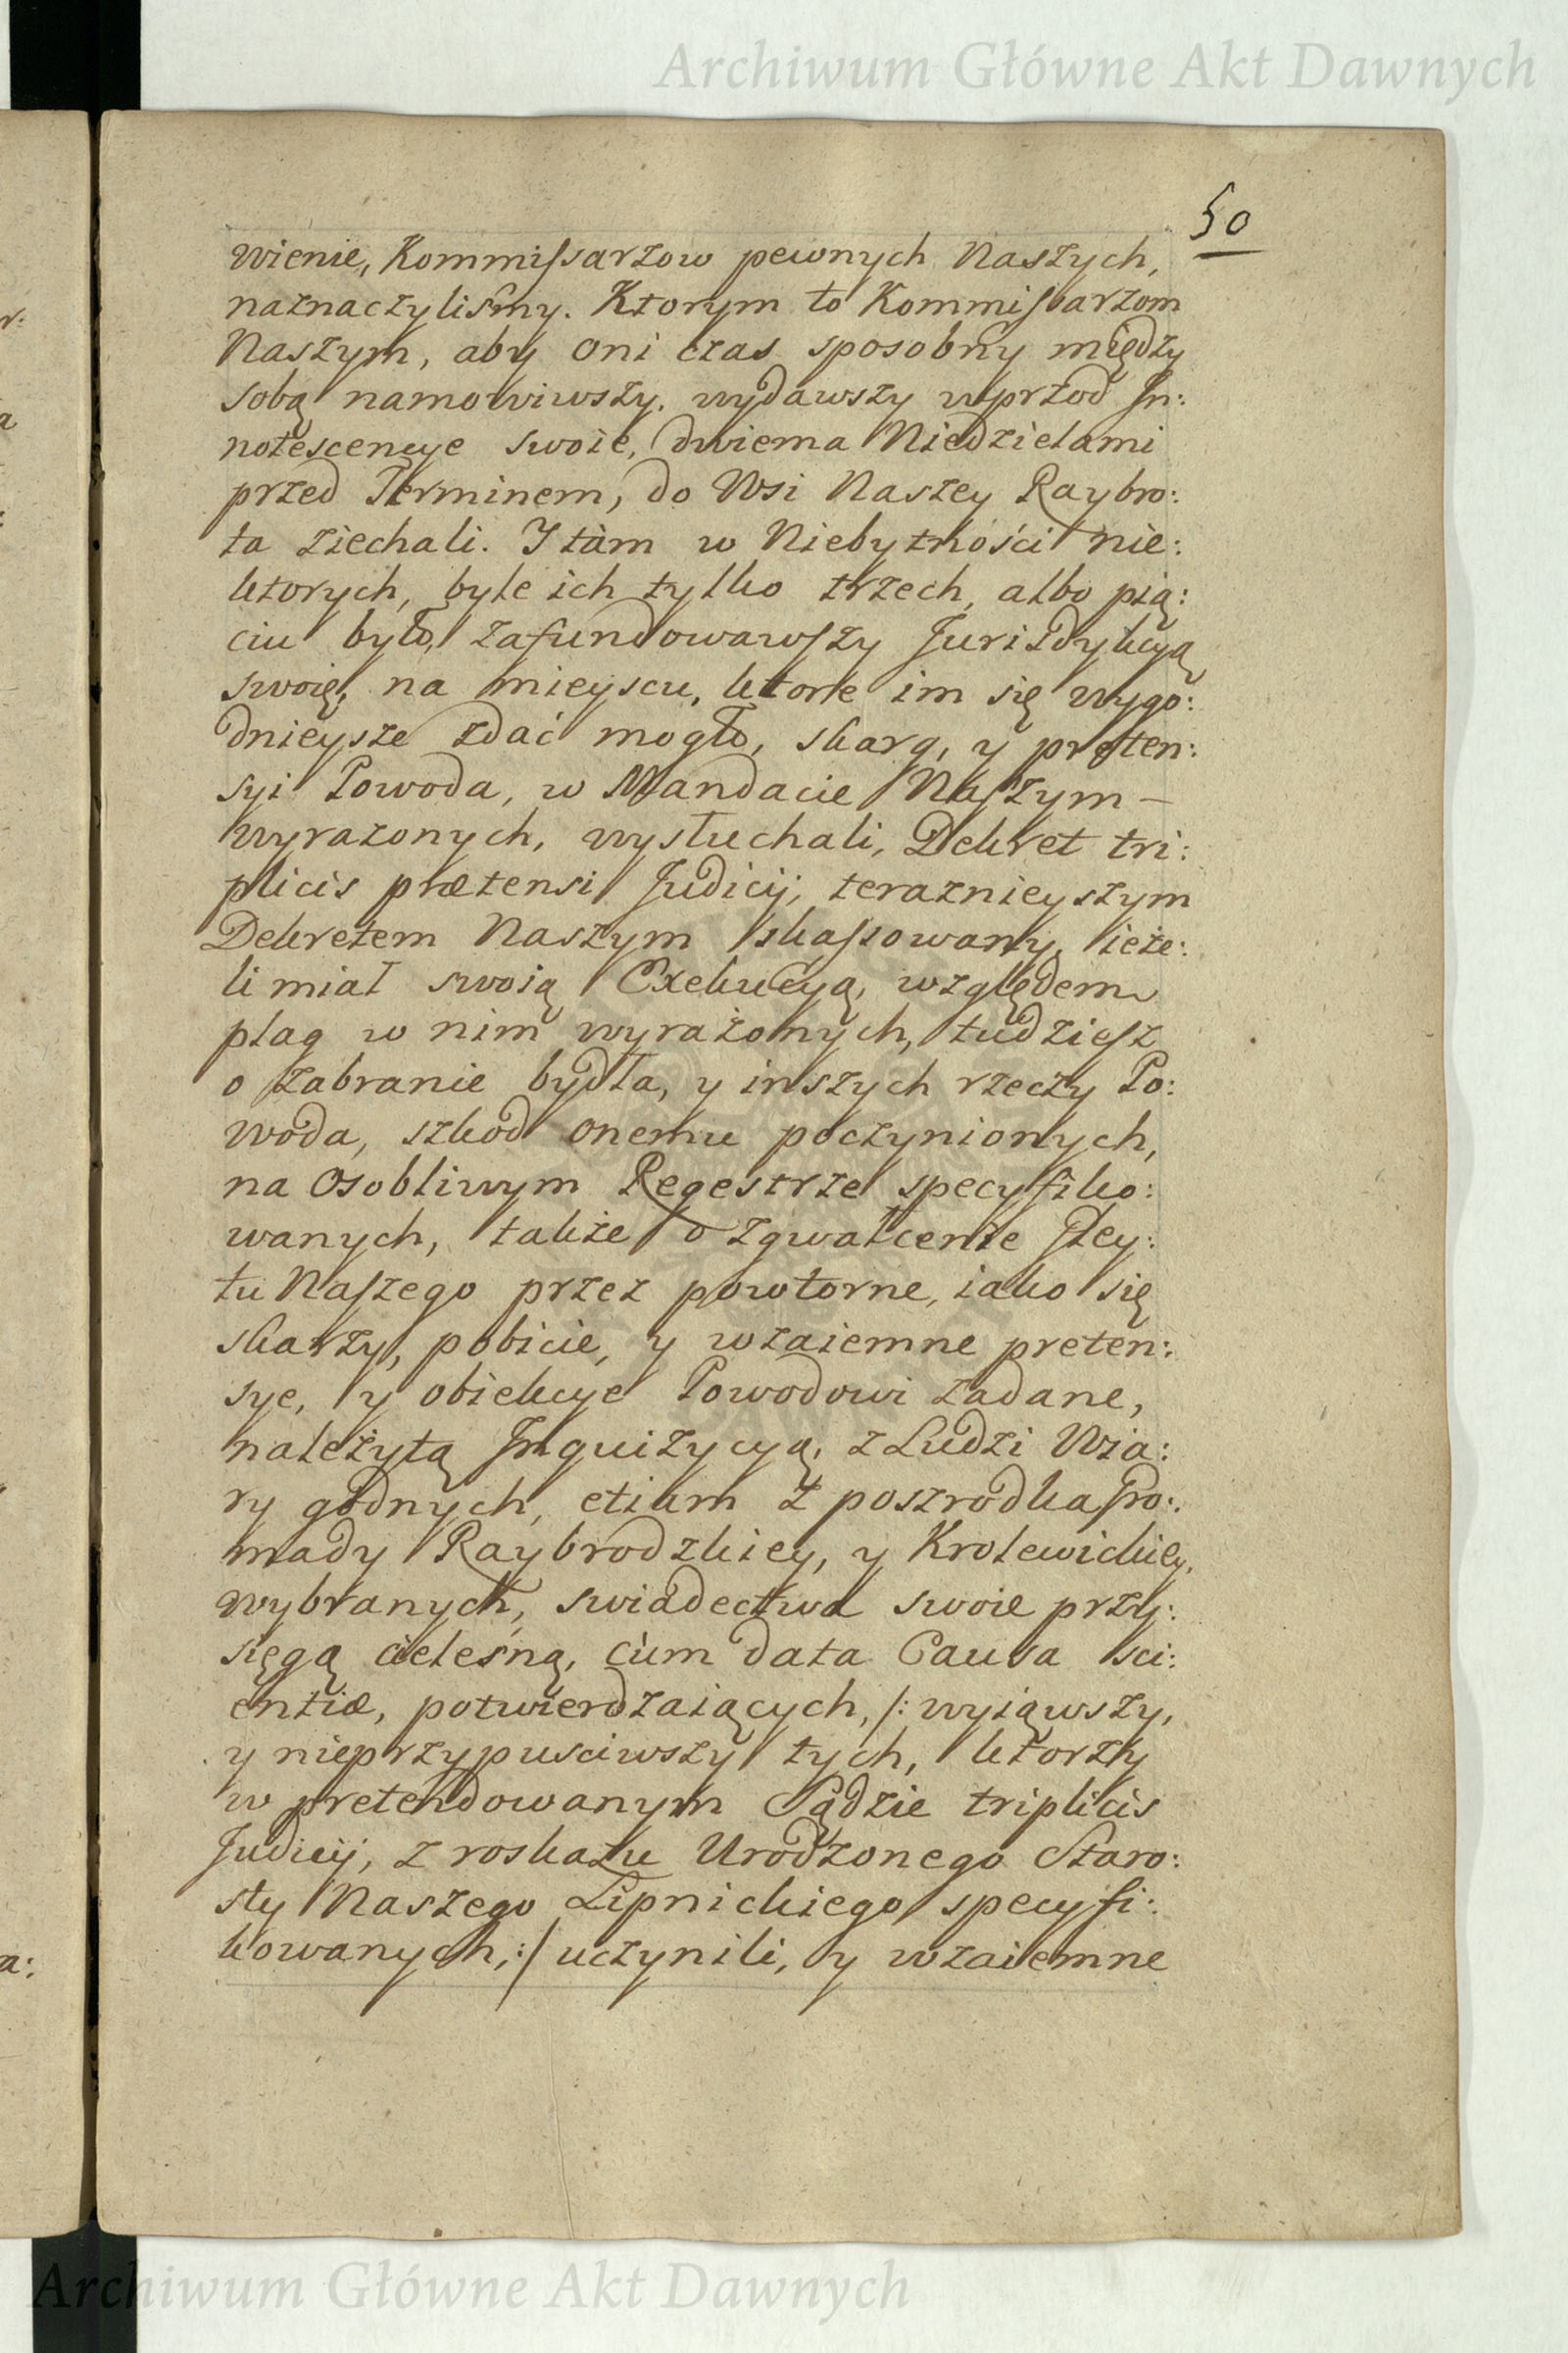 Archiwum Główne Akt Dawnych
50
wienie, Kommissarzow pewnych Naszych,
naznaczylismy. Ktorym to Kommissarzom
Naszym, aby oni czas sposobny między
sobą namowiwszy, wydawszy wprzod In:
notescencye swoie, dwiema Niedzielami
przed Terminem, do Wsi Naszey Raybro:
ta ziechali. I tàm w Niebytności nie:
ktorych, byle ich tylko trzech, albo pią:
ciu było, zafundowawszy Jurizdykcyą
swoię, na mieyscu, ktore im się wygo:
dnieysze zdać mogło, skarg, y preten:
syi Powoda, w Mandacie Naszym –
wyrazonych, wysłuchali, Dekret tri:
plicis prætensi Judicij, teraznieyszym
Dekretem Naszym skassowany, ieże:
li miał swoią Exekucyą, względem
plag w nim wyrażonych, tudziesz
o zabranie bydła, y inszych rzeczy Po:
woda, szkod onemu poczynionych,
na Osobliwym Regestrze specyfiko:
wanych, także o zgwałcenie Gley:
tu Naszego przez powtorne, iako się
skarzy, pobicie, y wzaiemne preten:
sye, y obiekcye Powodowi zadane,
należytą Inquizycyą, z Ludzi Wia:
ry godnych, etiam z poszrodka Gro:
mady Raybrodzkiey, y Krolewickiey,
wybranych, swiadectwa swoie przy:
sięgą cieleśną, cùm data Causa sci:
entiæ, potwierdzaiących, /: wyiąwszy,
y nieprzypusciwszy tych, ktorzy
w pretendowanym Sądzie triplicis
Judicij, z roskazu Urodzonego Staro:
sty Naszego Lipnickiego specyfi:
kowanych, :/ uczynili, y wzaiemne
Archiwum Główne Akt Dawnych